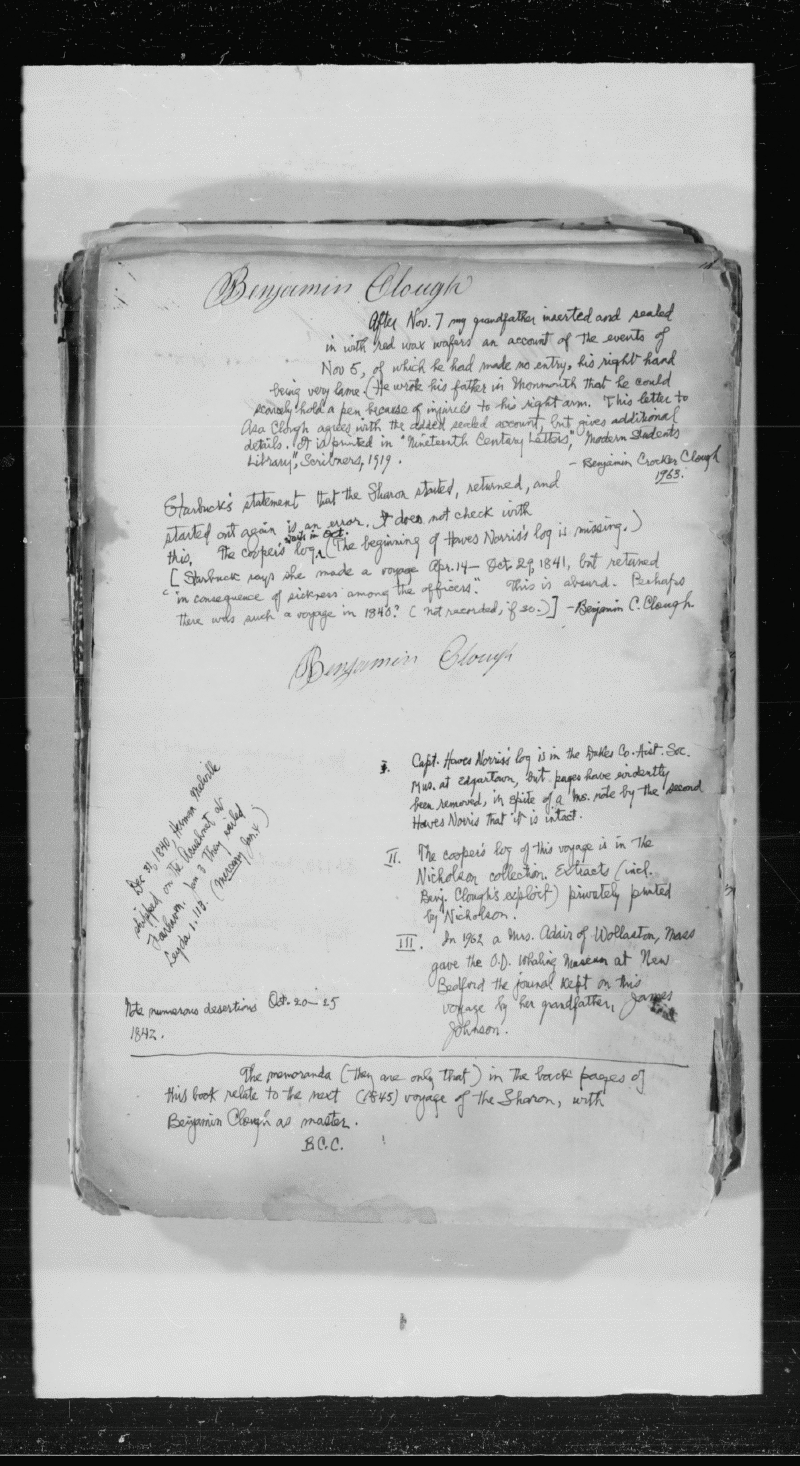 Benjamin Clough
After Nov. 7 my grandfather inserted and sealed
in with red wax wafers an account of the events of
Nov 5, of which he had made no entry, his right hand
being very lame. (He wrote his father in Monmouth that he could
scarcely hold a pen because of injuries to his right arm. This letter to
Asa Clough agrees with the added sealed account, but gives additional
details. It is printed in "Nineteenth Century Letters," Modern Students
Library", Scribners, 1919.
- Benjamin Crocker Clough
1963.
Starbuck's statement that the Sharon started, returned, and
started out again is an error. It does not check with
this. The cooper's log, (The beginning of Howes Norris's log is missing.)
[Starbuck says she made a voyage Apr. 14 - Oct. 29, 1841, but returned
"in consequence of sickness among the officers." This is absurd. Perhaps
there was such a voyage in 1840? (not recorded, if so.)] - Benjamin C. Clough
Benjamin Clough
I. Capt. Howes Norris's log is in the Dukes Co. Hist. Soc.
Mus. at Edgartown, but pages have evidently
been removed, in spite of a ms. note by the second
Howes Norris that it is intact.
II. The cooper's log of this voyage is in the
Nicholson collection. Extracts (incl.
Benj. Clough's exploit) privately printed
by Nicholson.
III. In 1962 a Mrs. Adair of Wollaston, Mass
gave the O.D. Whaling Museum at New
Bedford the journal kept on this
voyage by her grandfather, James
Johnson.
Dec 31, 1840, Herman Melville
shipped on the Acushnet at
Fairhaven. Jan 3 they sailed
Leyda 1.113. (Mercury Jan. 4)
Note numerous desertions Oct. 20 - 25
1842.
The memoranda (they are only that) in the back pages of
this book relate to the next (1845) voyage of the Sharon, with
Benjamin Clough as master.
B.C.C.